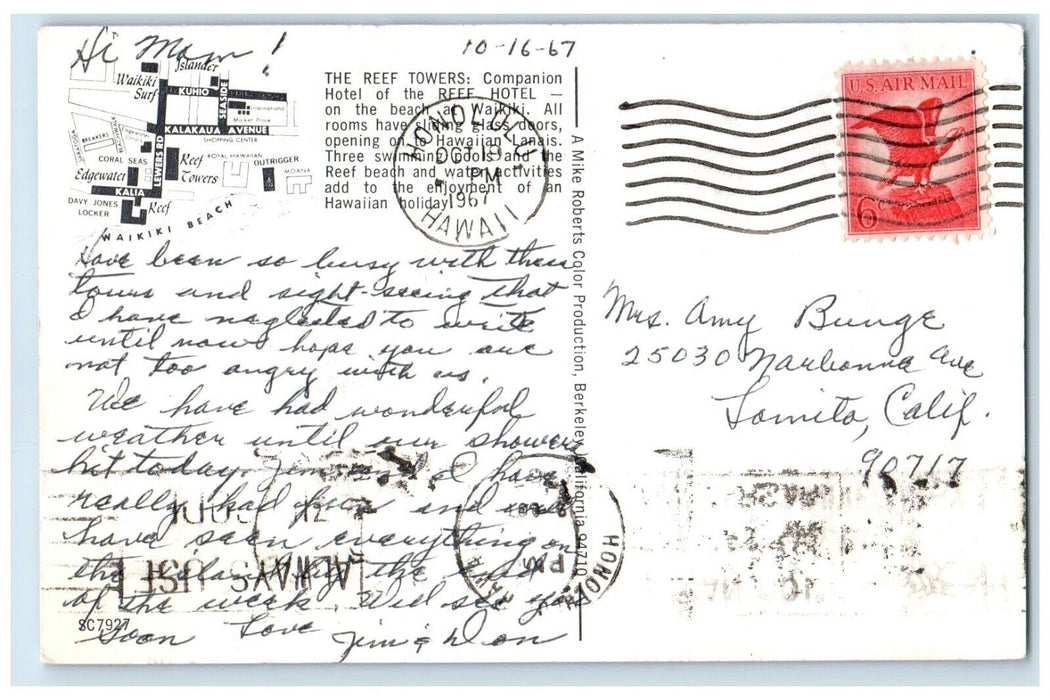 Hi Mom!
10-16-67
Islander
Waikiki Surf
KUHIO
SEASIDE
International Market Place
KALAKAUA AVENUE
SHOPPING CENTER
BREAKERS
Edgewater
LEWERS RD
CORAL SEAS
Reef Towers
ROYAL HAWAIIAN
OUTRIGGER
MOANA
Edgewater
KALIA
DAVY JONES LOCKER
Reef
WAIKIKI BEACH
THE REEF TOWERS: Companion
Hotel of the REEF HOTEL —
on the beach at Waikiki. All
rooms have sliding glass doors,
opening on to Hawaiian Lanais.
Three swimming pools and the
Reef beach and water activities
add to the enjoyment of an
Hawaiian holiday.
HONOLULU
OCT 19
PM
1967
HAWAII
U.S. AIR MAIL
6c
Have been so busy with these
tours and sight-seeing that
I have neglected to write
until now hope you are
not too angry with us.
We have had wonderful
weather until our showers
hit today. Jim and I have
really had fun and will
have seen everything on
the island by the end
of the week. Will see you
soon Love Jim & Don
SC7927
A Mike Roberts Color Production, Berkeley, California 94710
Mrs. Amy Bunge
25030 Narbonne Ave
Lomita, Calif.
90717
ALWAYS USE
ZIP CODE
HONOL
PM